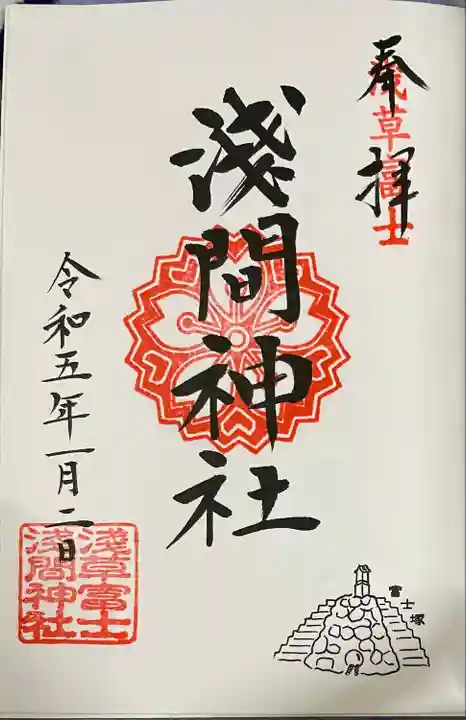 奉拝
浅草富士
淺間神社
令和五年一月二日
淺草富士
淺間神社
富士塚